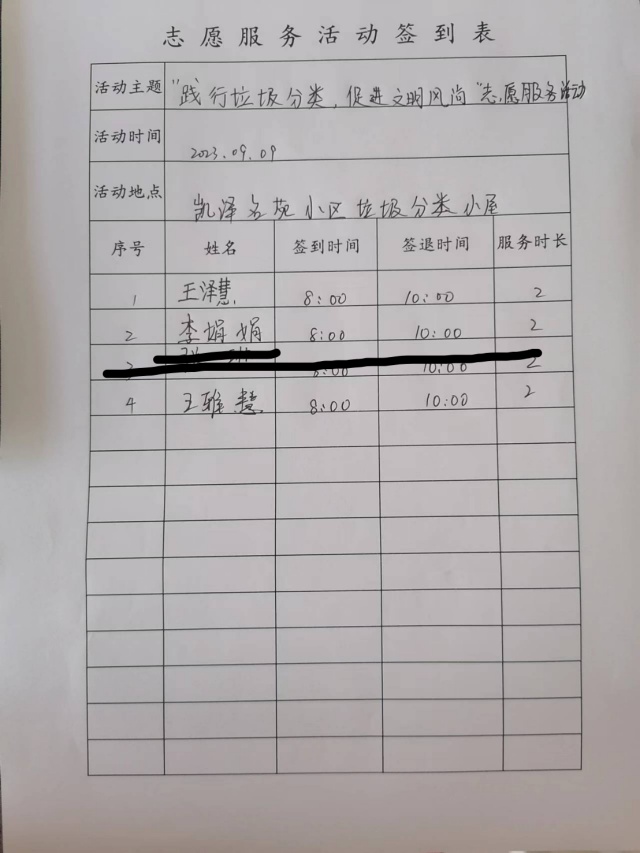 志愿服务活动签到表
活动主题 "践行垃圾分类,促进文明风尚"志愿服务活动
活动时间 2023.09.09
活动地点 凯泽名苑小区垃圾分类小屋
序号 姓名 签到时间 签退时间 服务时长
1 王泽慧 8:00 10:00 2
2 李娟娟 8:00 10:00 2
3 8:00 10:00 2
4 王雅慧 8:00 10:00 2